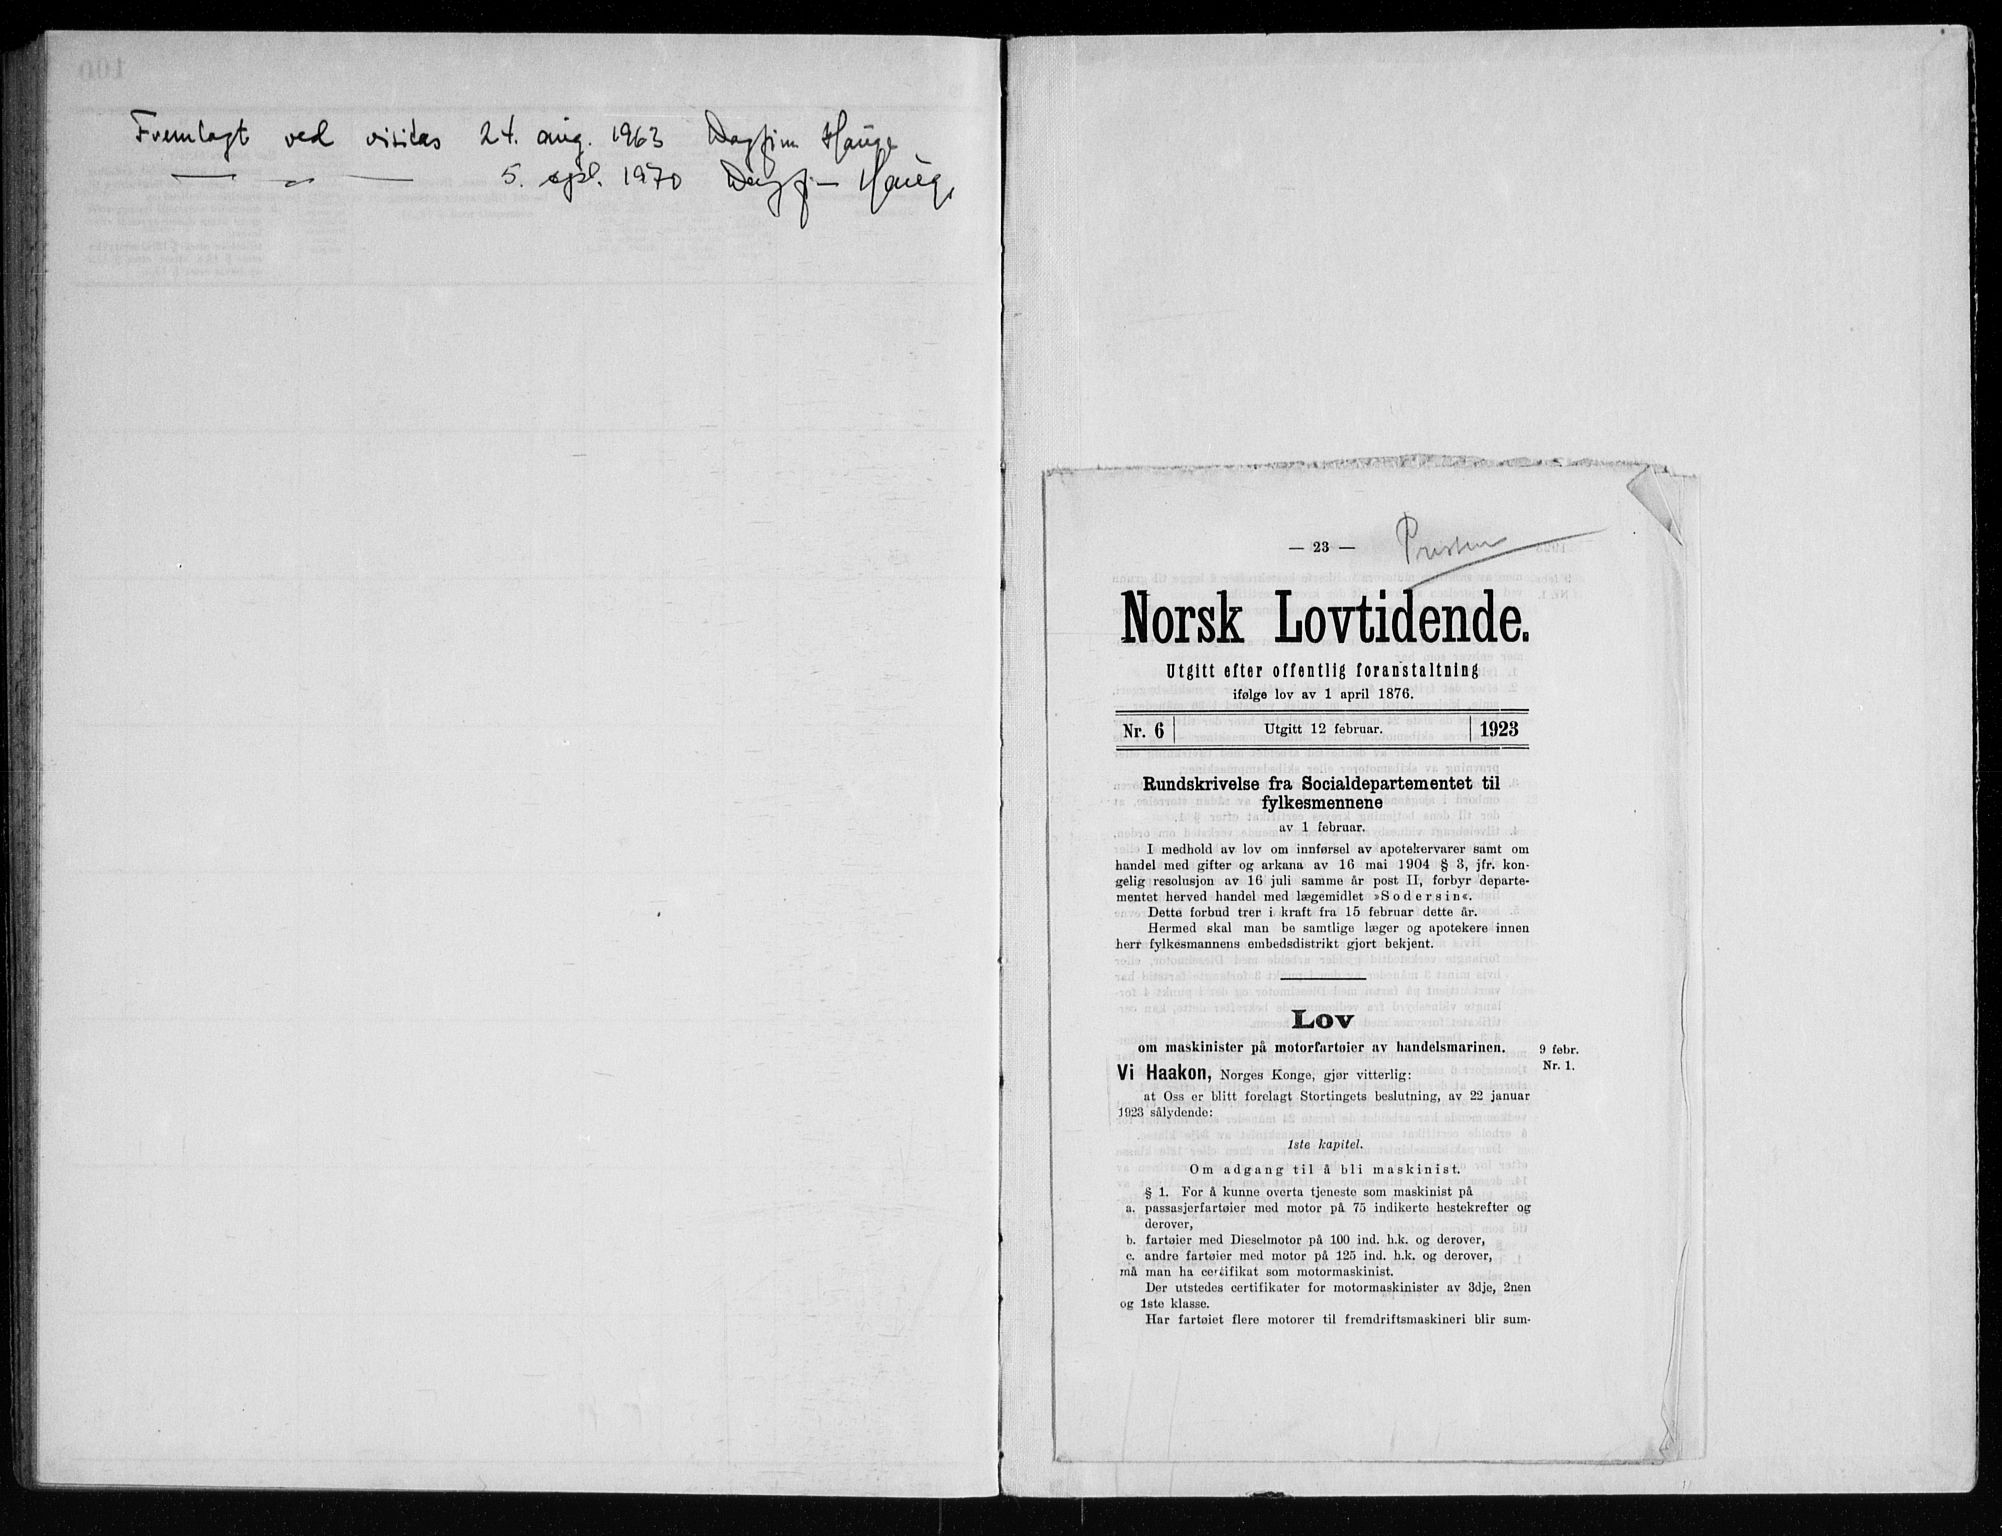 Fremlagt ved visitas 24. aug. 1963 Dagfinn Hauge
— „ — 5. sept. 1970 Dagfinn Hauge
— 23 —
Presten
Norsk Lovtidende.
Utgitt efter offentlig foranstaltning
ifølge lov av 1 april 1876.
Nr. 6 Utgitt 12 februar. 1923
Rundskrivelse fra Socialdepartementet til
fylkesmennene
av 1 februar.
I medhold av lov om innførsel av apotekervarer samt om
handel med gifter og arkana av 16 mai 1904 § 3, jfr. kon-
gelig resolusjon av 16 juli samme år post II, forbyr departe-
mentet herved handel med lægemidlet »Sodersin«.
Dette forbud trer i kraft fra 15 februar dette år.
Hermed skal man be samtlige læger og apotekere innen
herr fylkesmannens embedsdistrikt gjort bekjent.
Lov
om maskinister på motorfartøier av handelsmarinen.
9 febr.
Nr. 1.
Vi Haakon, Norges Konge, gjør vitterlig:
at Oss er blitt forelagt Stortingets beslutning, av 22 januar
1923 sålydende:
1ste kapitel.
Om adgang til å bli maskinist.
§ 1. For å kunne overta tjeneste som maskinist på
a. passasjerfartøier med motor på 75 indikerte hestekrefter og
derover,
b. fartøier med Dieselmotor på 100 ind. h.k. og derover,
c. andre fartøier med motor på 125 ind. h.k. og derover,
må man ha certifikat som motormaskinist.
Der utstedes certifikater for motormaskinister av 3dje, 2nen
og 1ste klasse.
Har fartøiet flere motorer til fremdriftsmaskineri blir sum-